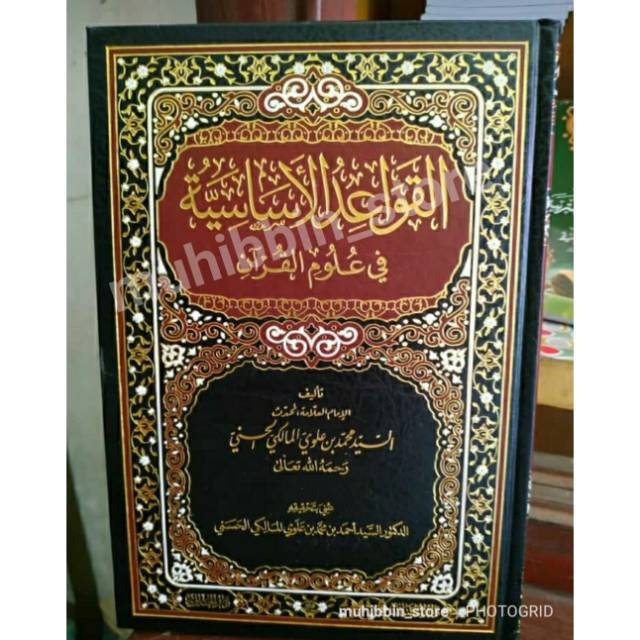 القَوَاعِدُ الأَسَاسِيَّة
في عُلُوم القُرآن
muhibbin_store
تأليف
الإمام العلّامة المحدّث
السّيّد محمّد بن علوي المالكي الحسني
رحمه الله تعالى
عني بتحقيقه
الدكتور السّيّد أحمد بن محمّد بن علوي المالكي الحسني
muhibbin_store
PHOTOGRID